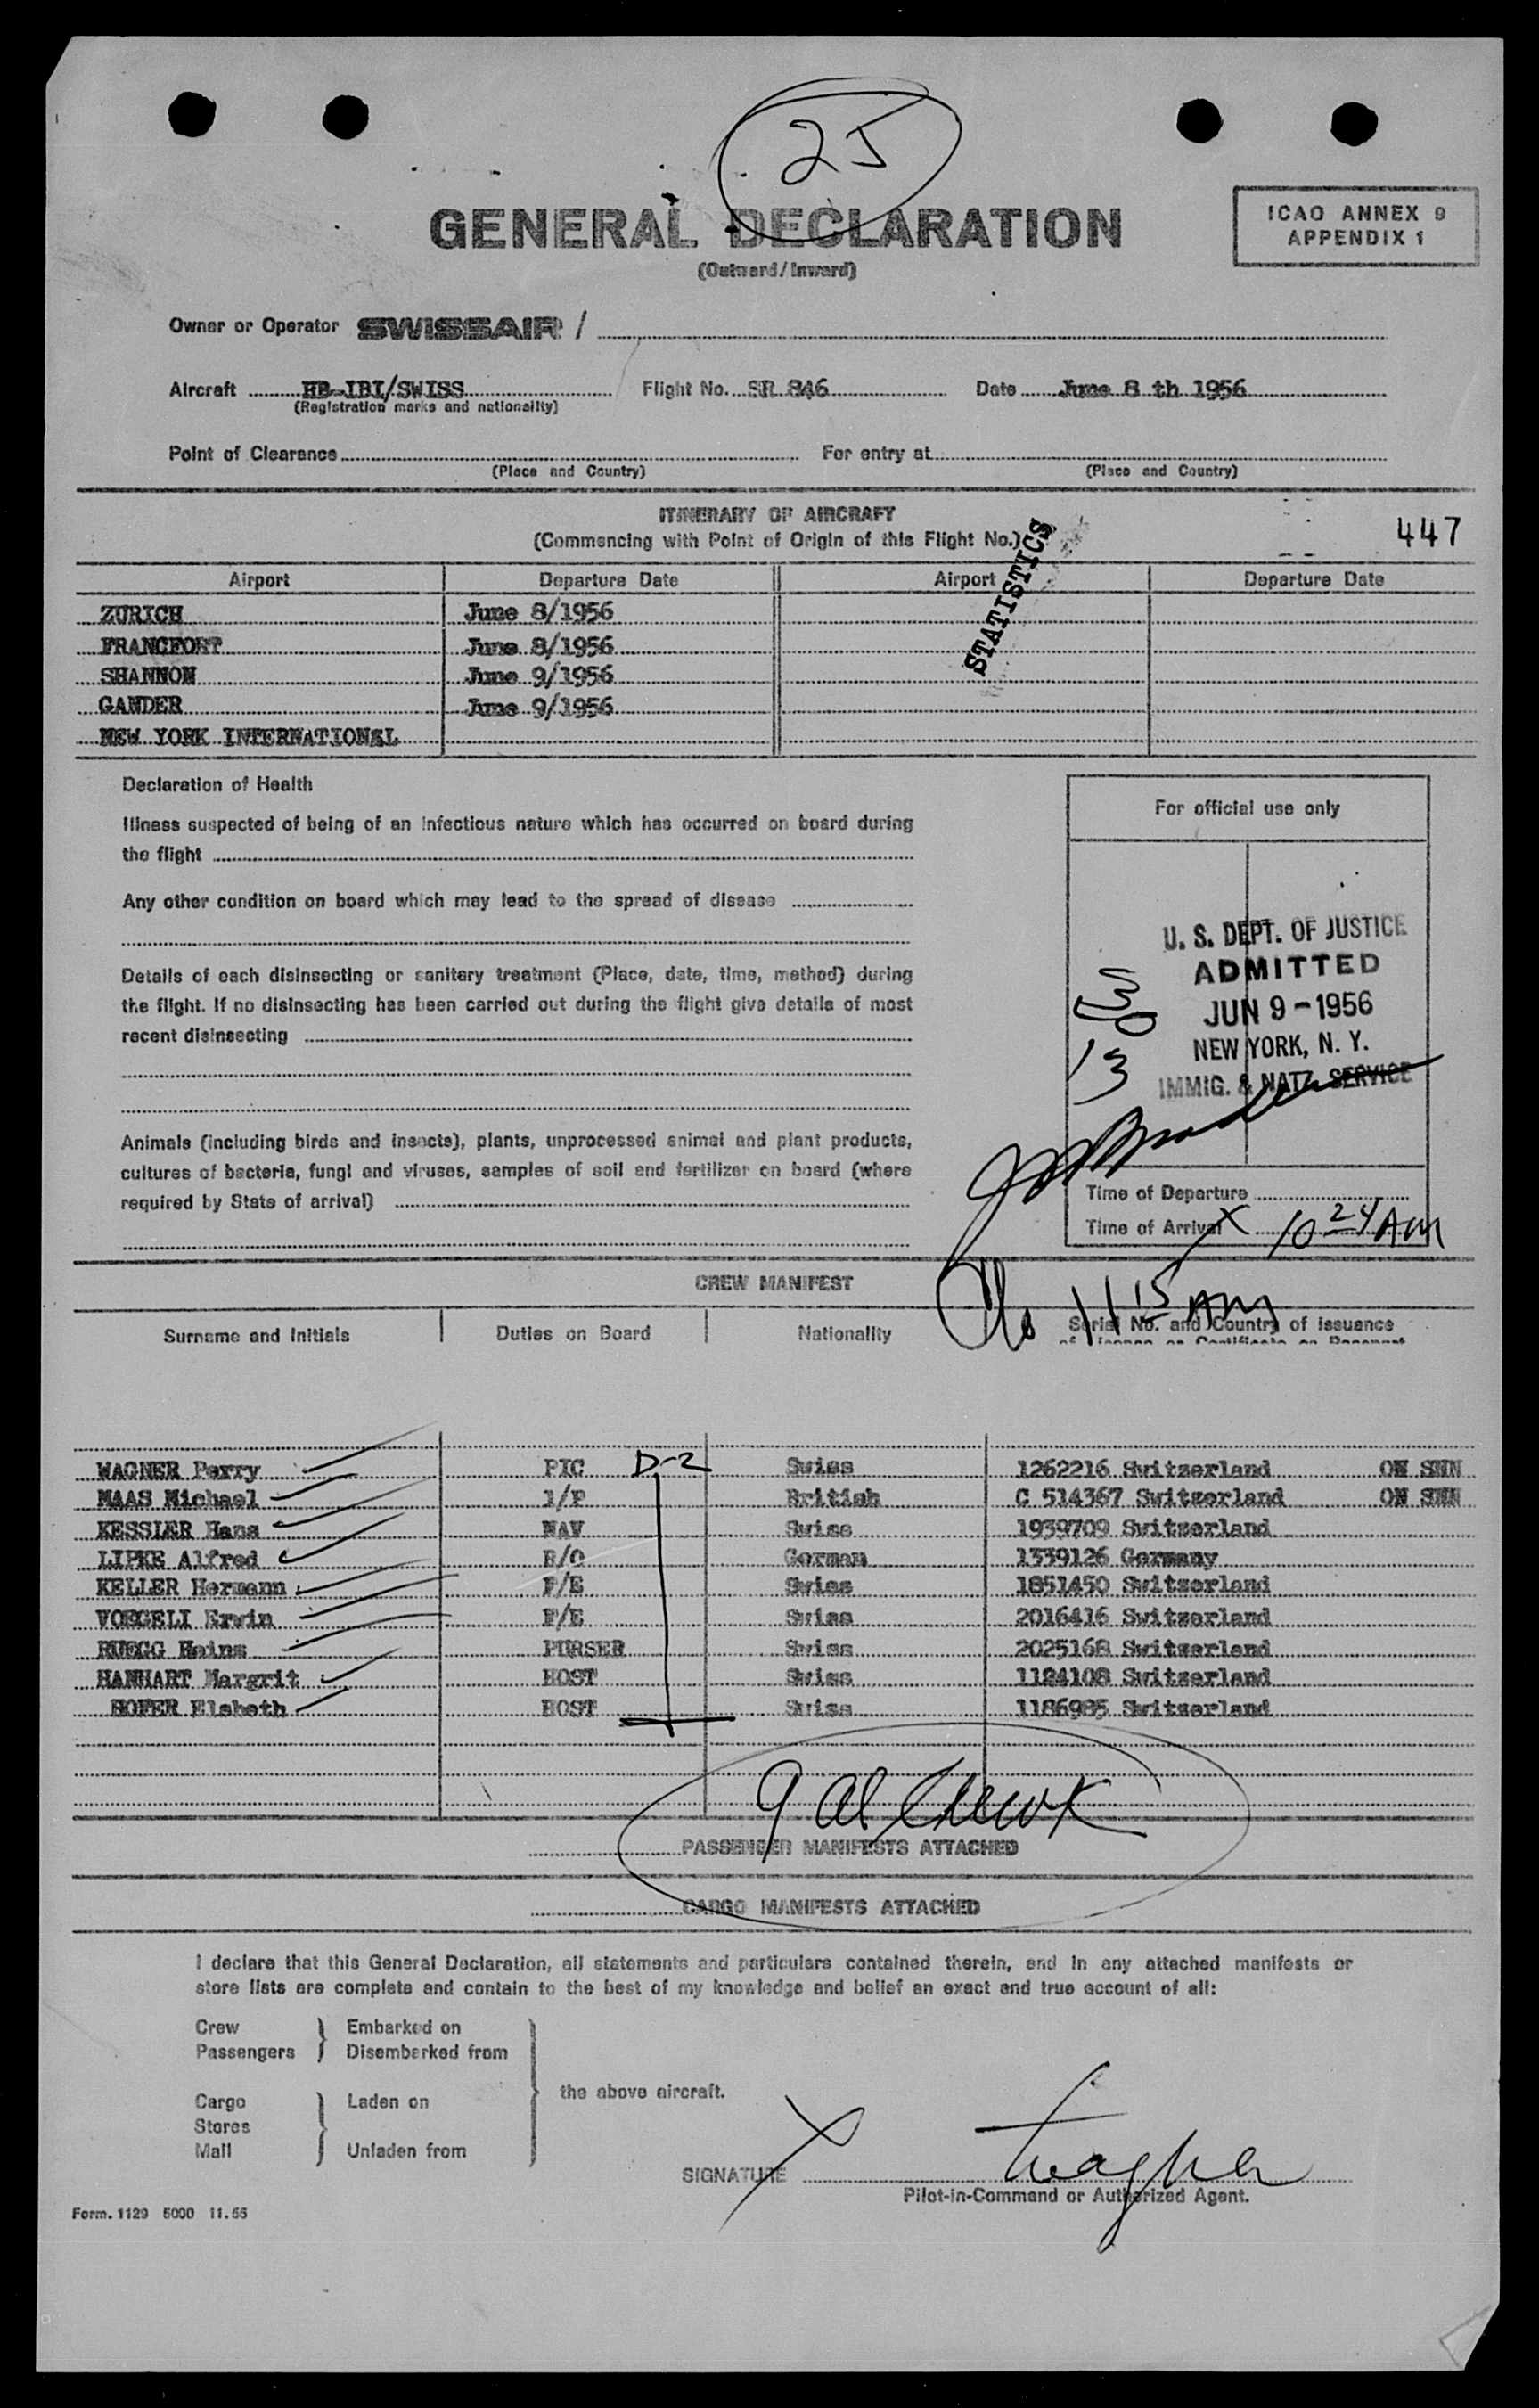 25
GENERAL DECLARATION
(Outward/Inward)
ICAO ANNEX 9
APPENDIX 1
Owner or Operator SWISSAIR /
Aircraft HB-IBI/SWISS Flight No. SR 846 Date June 8 th 1956
(Registration marks and nationality)
Point of Clearance For entry at
(Place and Country) (Place and Country)
ITINERARY OF AIRCRAFT
(Commencing with Point of Origin of this Flight No.)
STATISTICS
447
Airport Departure Date Airport Departure Date
ZURICH June 8/1956
FRANCFORT June 8/1956
SHANNON June 9/1956
GANDER June 9/1956
NEW YORK INTERNATIONAL
Declaration of Health
Illness suspected of being of an infectious nature which has occurred on board during
the flight
Any other condition on board which may lead to the spread of disease
Details of each disinsecting or sanitary treatment (Place, date, time, method) during
the flight. If no disinsecting has been carried out during the flight give details of most
recent disinsecting
Animals (including birds and insects), plants, unprocessed animal and plant products,
cultures of bacteria, fungi and viruses, samples of soil and fertilizer on board (where
required by State of arrival)
For official use only
U. S. DEPT. OF JUSTICE
ADMITTED
JUN 9 - 1956
NEW YORK, N. Y.
IMMIG. & NATZ. SERVICE
Time of Departure
Time of Arrival X 10 24 AM
11 15 AM
CREW MANIFEST
Surname and Initials Duties on Board Nationality Serial No. and Country of issuance
of licence or Certificate or Passport
WAGNER Perry PIC D-2 Swiss 1262216 Switzerland ON SNN
MAAS Michael 1/P British C 514367 Switzerland ON SNN
KESSLER Hans NAV Swiss 1939709 Switzerland
LIPKE Alfred R/O German 1339126 Germany
KELLER Hermann F/E Swiss 1851450 Switzerland
VOEGELI Erwin F/E Swiss 2016416 Switzerland
RUEGG Heinz PURSER Swiss 2025168 Switzerland
HANHART Margrit HOST Swiss 1124108 Switzerland
HOFER Elsbeth HOST Swiss 1186985 Switzerland
9 al Crewx
PASSENGER MANIFESTS ATTACHED
CARGO MANIFESTS ATTACHED
I declare that this General Declaration, all statements and particulars contained therein, and in any attached manifests or
store lists are complete and contain to the best of my knowledge and belief an exact and true account of all:
Crew Embarked on
Passengers Disembarked from
the above aircraft.
Cargo Laden on
Stores
Mail Unladen from
SIGNATURE X Wagner
Pilot-in-Command or Authorized Agent.
Form. 1129 5000 11.55